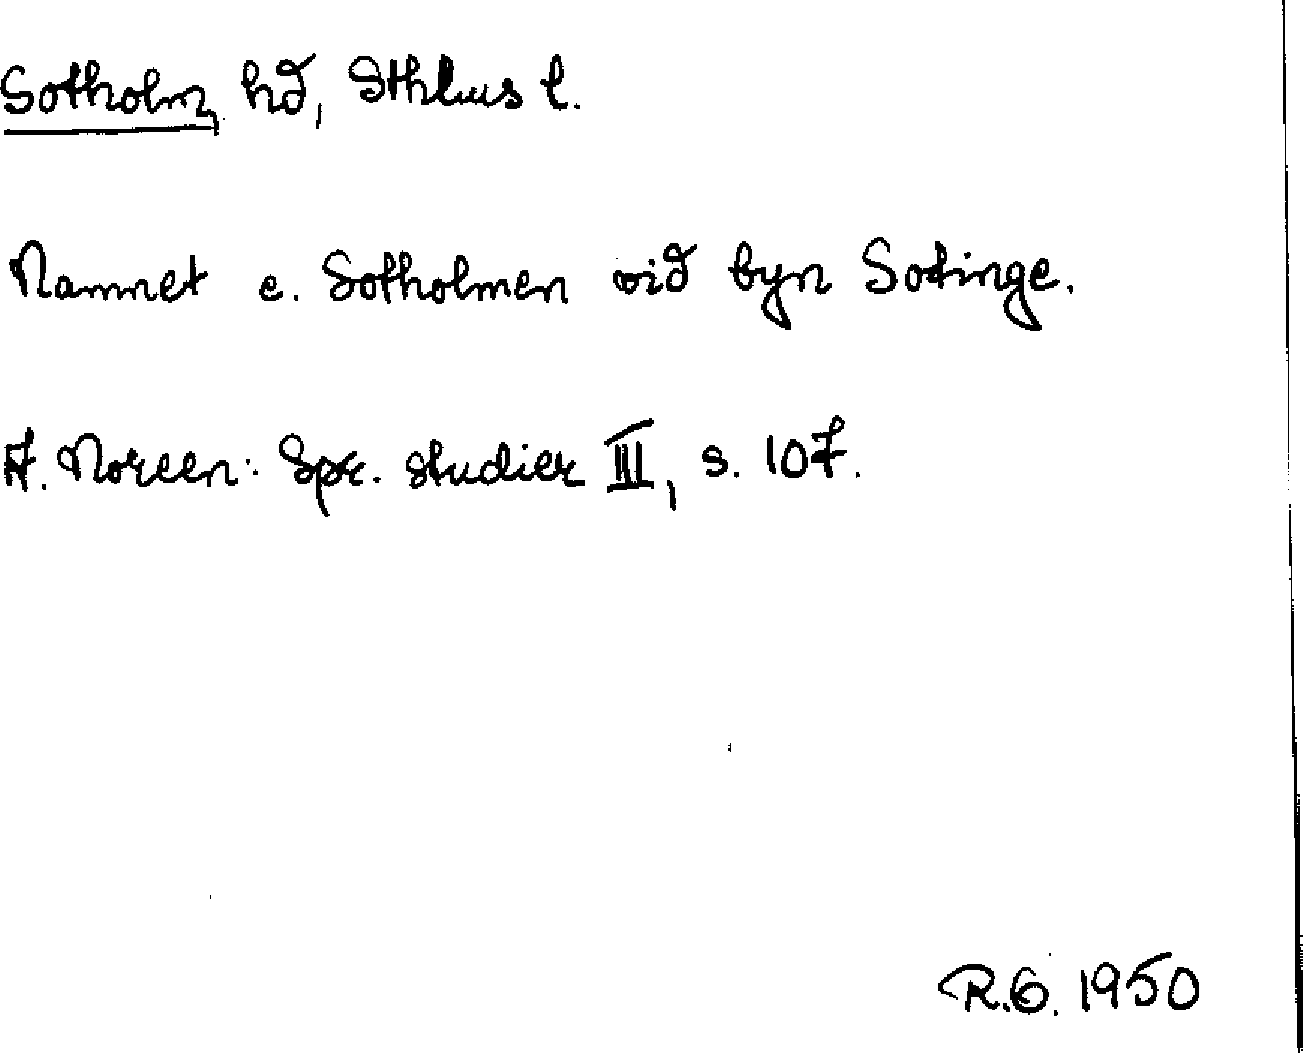 Sotholm, hd, Sthlms l.
Namnet e. Sotholmen vid byn Sotinge.
A. Noreen: Spr. studier III, s. 107.
R.G. 1950